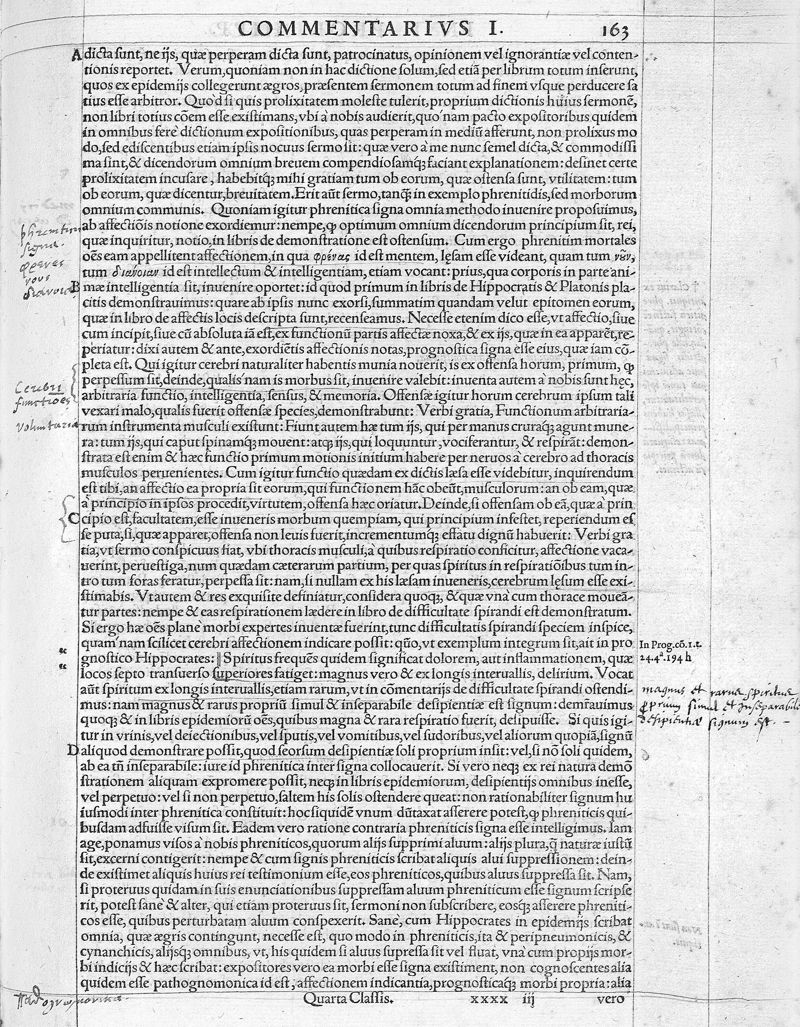 COMMENTARIVS I. 163
A dicta sunt, ne ijs, quæ perperam dicta sunt, patrocinatus, opinionem vel ignorantiæ vel conten-
tionis reportet. Verum, quoniam non in hac dictione solum, sed etiā per librum totum inserunt,
quos ex epidemijs collegerunt ægros, præsentem sermonem totum ad finem vsque perducere sa
tius esse arbitror. Quòd si quis prolixitatem moleste tulerit, proprium dictionis huius sermonē,
non libri totius cōem esse existimans, vbi à nobis audierit, quo'nam pacto expositoribus quidem
in omnibus ferè dictionum expositionibus, quas perperam in mediū afferunt, non prolixus mo
do, sed ediscentibus etiam ipsis nocuus sermo sit: quæ vero à me nunc semel dicta, & commodissi
ma sint, & dicendorum omnium breuem compendiosamq́; faciant explanationem: desinet certe
prolixitatem incusare, habebitq́; mihi gratiam tum ob eorum, quæ ostensa sunt, vtilitatem: tum
ob eorum, quæ dicentur, breuitatem. Erit aūt sermo, tanq̄; in exemplo phrenitidis, sed morborum
omnium communis. Quoniam igitur phrenitica signa omnia methodo inuenire proposuimus,
ab affectiōis notione exordiemur: nempe, ꝙ optimum omnium dicendorum principium sit, rei,
quæ inquiritur, notio, in libris de demonstratione est ostensum. Cum ergo phrenitim mortales
oēs eam appellitent affectionem, in qua φρένας id est mentem, læsam esse videant, quam tum νῶν,
tum διάνοιαν id est intellectum & intelligentiam, etiam vocant: prius, qua corporis in parte ani-
B mæ intelligentia sit, inuenire oportet: id quod primum in libris de Hippocratis & Platonis pla-
citis demonstrauimus: quare ab ipsis nunc exorsi, summatim quandam velut epitomen eorum,
quæ in libro de affectis locis descripta sunt, recenseamus. Necesse etenim dico esse, vt affectio, siue
cum incipit, siue cū absoluta iā est, ex functionū partis affectæ noxa, & ex ijs, quæ in ea apparēt, re-
periatur: dixi autem & ante, exordiētis affectionis notas, prognostica signa esse eius, quæ iam cō-
pleta est. Qui igitur cerebri naturaliter habentis munia nouerit, is ex offensa horum, primum, ꝙ
perpessum sit, deinde, qualis'nam is morbus sit, inuenire valebit: inuenta autem à nobis sunt hęc,
arbitraria functio, intelligentia, sensus, & memoria. Offensæ igitur horum cerebrum ipsum tali
vexari malo, qualis fuerit offensæ species, demonstrabunt: Verbi gratia, Functionum arbitraria-
rum instrumenta musculi existunt: Fiunt autem hæ tum ijs, qui per manus cruraq́; agunt mune-
ra: tum ijs, qui caput spinamq́; mouent: atq́; ijs, qui loquuntur, vociferantur, & respirāt: demon-
strata est enim & hæc functio primum motionis initium habere per neruos à cerebro ad thoracis
musculos peruenientes. Cum igitur functio quædam ex dictis læsa esse videbitur, inquirendum
est tibi, an affectio ea propria sit eorum, qui functionem hāc obeūt, musculorum: an ob eam, quæ
à principio in ipsos procedit, virtutem, offensa hæc oriatur. Deinde, si offensam ob eā, quæ à prin
C cipio est, facultatem, esse inueneris morbum quempiam, qui principium infestet, reperiendum es
se puta, si, quæ apparet, offensa non leuis fuerit, incrementumq́; effatu dignū habuerit: Verbi gra
tia, vt sermo conspicuus fiat, vbi thoracis musculi, à quibus respiratio conficitur, affectione vaca-
uerint, peruestiga, num quædam cæterarum partium, per quas spiritus in respiratiōibus tum in-
tro tum foras feratur, perpessa sit: nam, si nullam ex his læsam inueneris, cerebrum lęsum esse exi-
stimabis. Vt autem & res exquisite definiatur, considera quoq́;, & quæ vnà cum thorace moueā-
tur partes: nempe & eas respirationem lædere in libro de difficultate spirandi est demonstratum.
Si ergo hæ oēs planè morbi expertes inuentæ fuerint, tunc difficultatis spirandi speciem inspice,
quam'nam scilicet cerebri affectionem indicare possit: qūo, vt exemplum integrum sit, ait in pro
gnostico Hippocrates: Spiritus frequēs quidem significat dolorem, aut inflammationem, quæ
locos septo transuerso superiores fatiget: magnus vero & ex longis interuallis, delirium. Vocat
aūt spiritum ex longis interuallis, etiam rarum, vt in cōmentarijs de difficultate spirandi ostendi-
mus: nam magnus & rarus propriū simul & inseparabile desipientiæ est signum: demr̄auimus
quoq́; & in libris epidemiorū oēs, quibus magna & rara respiratio fuerit, desipuisse. Si quis igi-
tur in vrinis, vel deiectionibus, vel sputis, vel vomitibus, vel sudoribus, vel aliorum quopiā, signū
D aliquod demonstrare possit, quod seorsum desipientiæ soli proprium insit: vel, si nō soli quidem,
ab ea tn̄ inseparabile: iure id phrenitica inter signa collocauerit. Si vero neq́; ex rei natura demō
strationem aliquam expromere possit, neq́; in libris epidemiorum, desipientijs omnibus inesse,
vel perpetuo: vel si non perpetuo, saltem his solis ostendere queat: non rationabiliter signum hu
iusmodi inter phrenitica constituit: hoc siquidē vnum dūtaxat asserere potest, ꝙ phreniticis qui-
busdam adfuisse visum sit. Eadem vero ratione contraria phreniticis signa esse intelligimus. Iam
age, ponamus visos à nobis phreniticos, quorum alijs supprimi aluum: alijs plura, q̄ naturæ iustū
sit, excerni contigerit: nempe & cum signis phreniticis scribat aliquis alui suppressionem: dein-
de existimet aliquis huius rei testimonium esse, eos phreniticos, quibus aluus suppressa sit. Nam,
si proteruus quidam in suis enunciationibus suppressam aluum phreniticum esse signum scripse
rit, potest sanè & alter, qui etiam proteruus sit, sermoni non subscribere, eosq́; asserere phreniti-
cos esse, quibus perturbatam aluum conspexerit. Sanè, cum Hippocrates in epidemijs scribat
omnia, quæ ægris contingunt, necesse est, quo modo in phreniticis, ita & peripneumonicis, &
cynanchicis, alijsq́; omnibus, vt, his quidem si aluus supressa sit vel fluat, vnà cum proprijs mor-
bi indicijs & hæc scribat: expositores vero ea morbi esse signa existiment, non cognoscentes alia
quidem esse pathognomonica id est, affectionem indicantia, prognosticaq́; morbi propria: alia
Quarta Classis. xxxx iij vero
phrenitim
signa.
φρενες
νους
διανοια
Cerebri
functiones
voluntariæ
In Prog. cō. 1. t.
24. 4ª. 194 h
magnus et rarus spiritus
proprium simul et inseparabile
desipientiæ signum est.